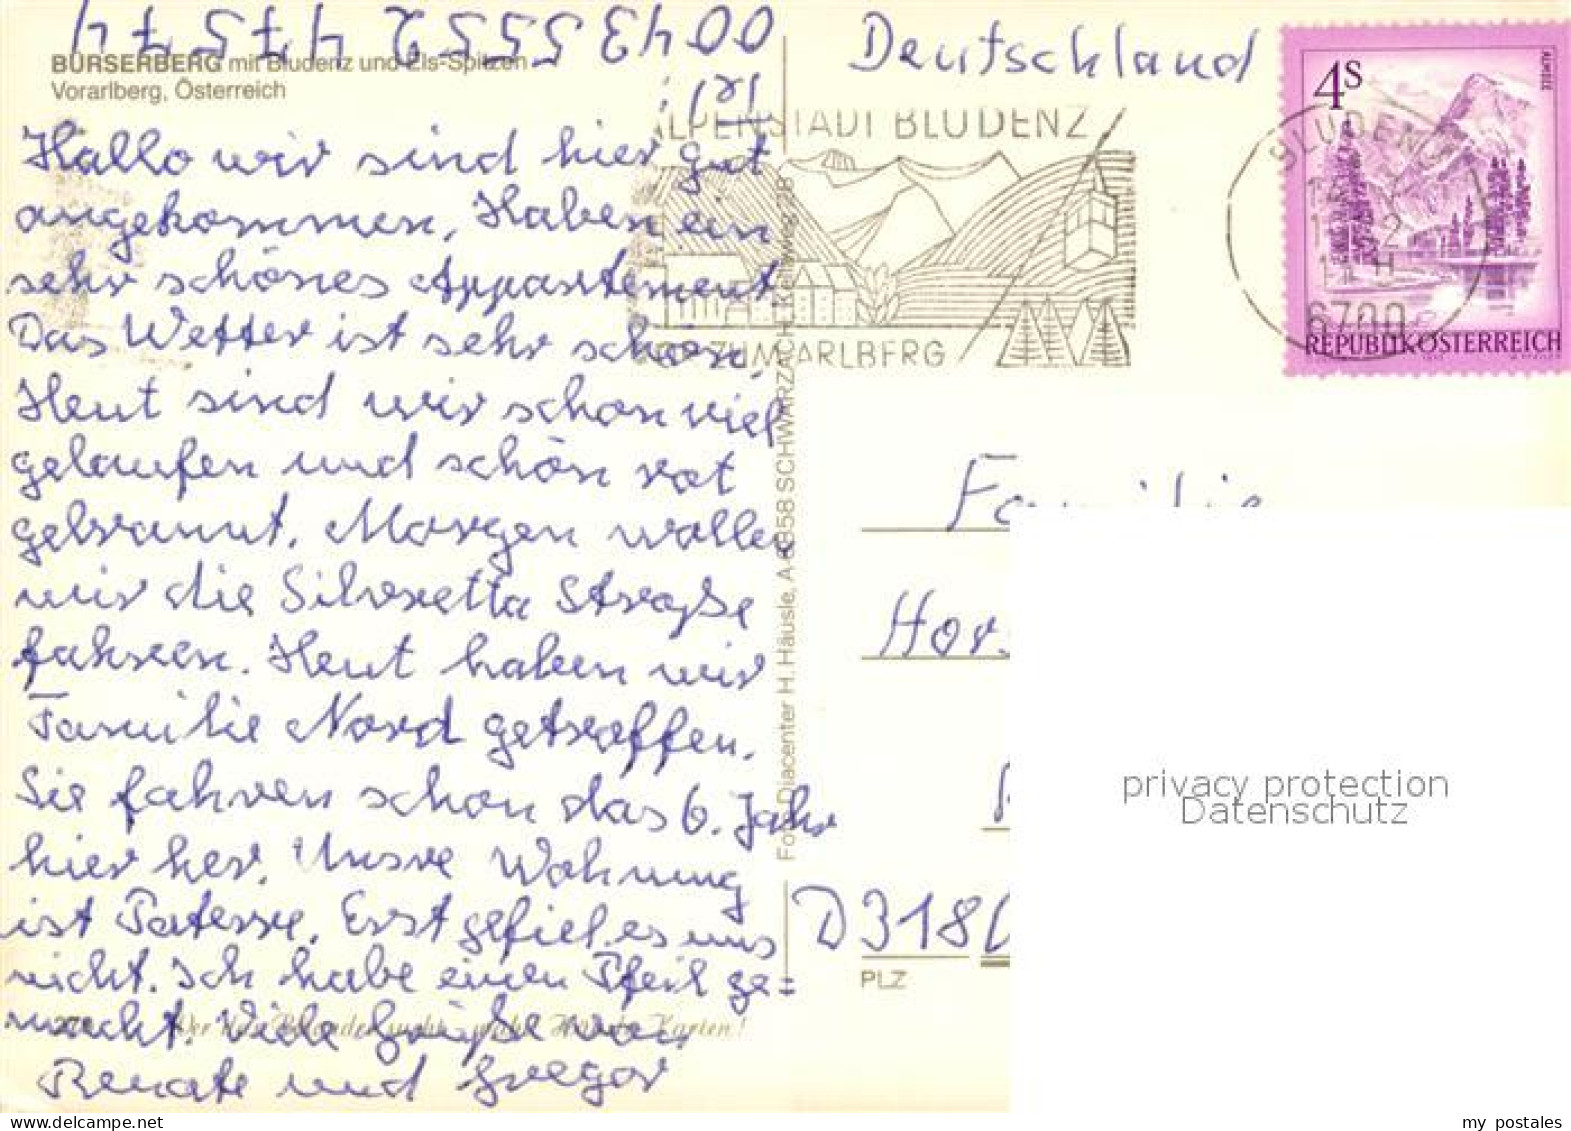 0043 5552 47574
Tel.:
BÜRSERBERG mit Bludenz und Zis-Spitzen
Vorarlberg, Österreich
Hallo wir sind hier gut
angekommen, Haben ein
sehr schönes Appartement
Das Wetter ist sehr schön,
Heut sind wir schon viel
gelaufen und schön rot
gebrannt. Morgen wollen
wir die Silvretta Straße
fahren. Heut haben wir
Familie Nord getroffen.
Sie fahren schon das 6. Jahr
hier her. Unsre Wohnung
ist Paterre. Erst gefiel es uns
nicht. Ich habe einen Pfeil ge=
macht. Viele Grüße von
Renate und Gregor
Foto Diacenter H. Häusle, A 6858 SCHWARZACH, Kellaweg 28
Deutschland
ALPENSTADT BLUDENZ
ZUM ARLBERG
BLUDENZ
6700
4S
ALMSEE
REPUBLIK ÖSTERREICH
Familie
Hors
D 3180
PLZ
privacy protection
Datenschutz
www.delcampe.net
my_postales